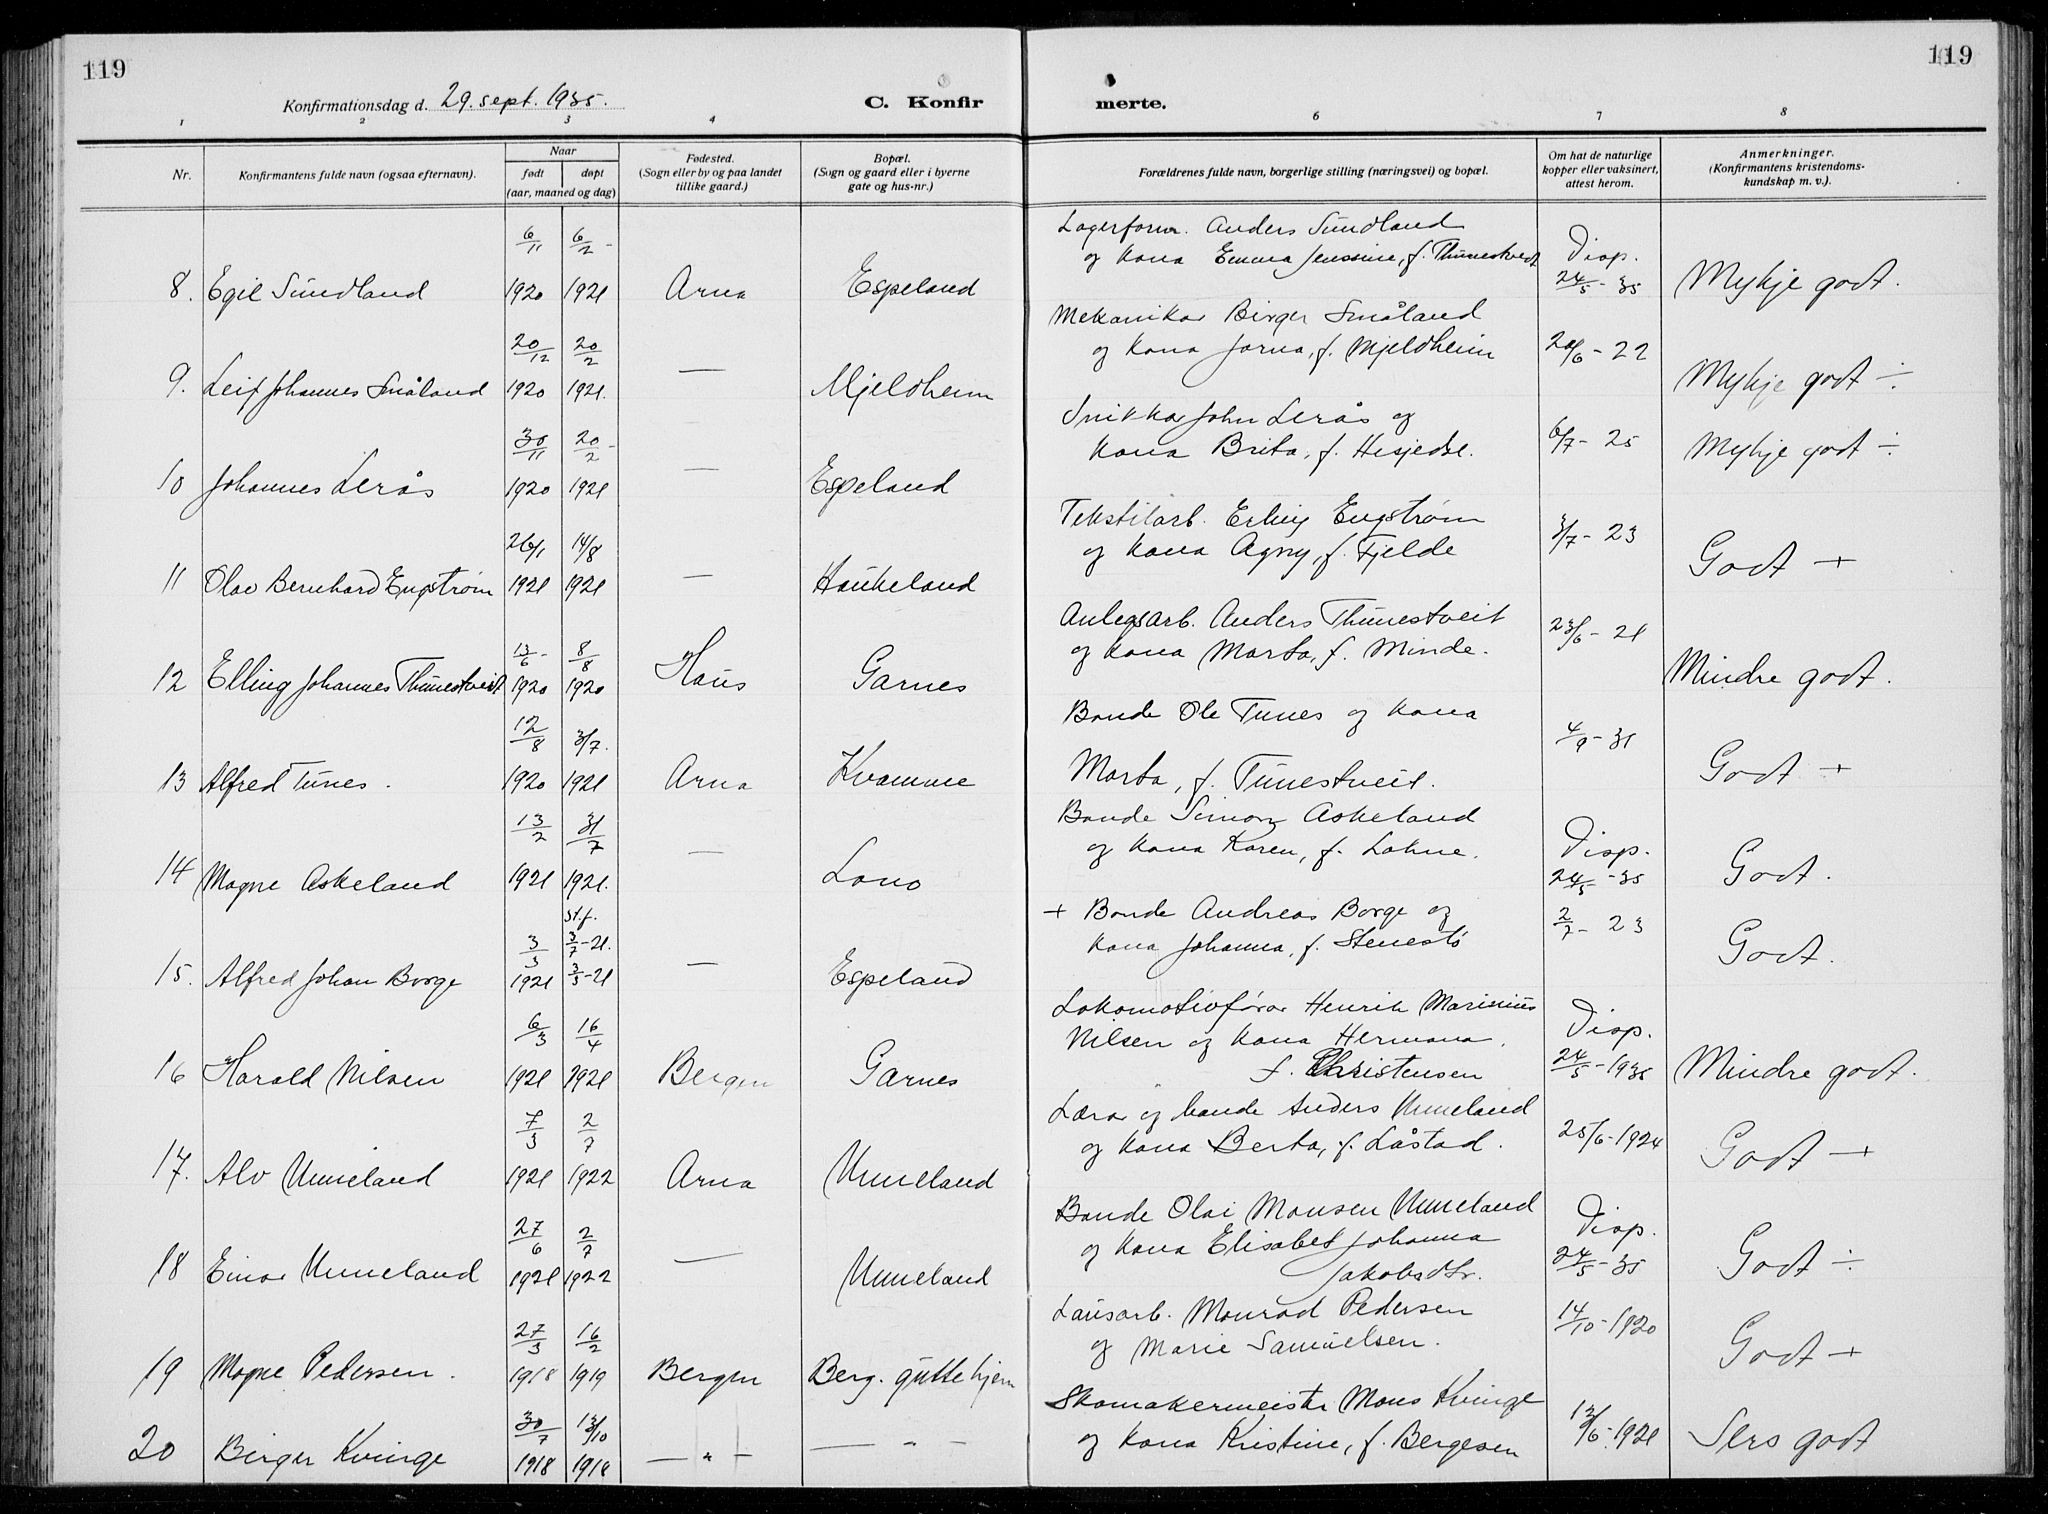 119
119
Konfirmationsdag d. 29. sept. 1935.
C. Konfir
merte.
1 2 3 4 6 7 8
Nr.
Konfirmantens fulde navn (ogsaa efternavn).
Naar
født
døpt
(aar, maaned og dag)
Fødested.
(Sogn eller by og paa landet
tillike gaard.)
Bopæl.
(Sogn og gaard eller i byerne
gate og hus-nr.)
Forældrenes fulde navn, borgerlige stilling (næringsvei) og bopæl.
Om hat de naturlige
kopper eller vaksinert,
attest herom.
Anmerkninger.
(Konfirmantens kristendoms-
kundskap m. v.).
6/11 6/2 -
Lagerform. Anders Sundland
og kona Emma Jenssine, f. Thunestvedt
Disp.
24/5 - 35
8. Egil Sundland 1920 1921 Arna Espeland Mykje godt.
20/12 20/2
Mekanikar Birger Småland
og kona Jorna, f. Mjeldheim
20/6 - 22
9. Leif Johannes Småland 1920 1921. — Mjeldheim Mykje godt ÷
30/11 20/2 -
Snikkar John Lerås og
kona Brita, f. Hesjedal.
6/7 - 25
10 Johannes Lerås 1920 1921 — Espeland Mykje godt ÷
26/1 14/8
Tekstilarb. Erling Engstrøm
og kona Agny, f. Fjelde
3/7 - 23
11 Olav Bernhard Engstrøm 1921 1921 — Haukeland Godt +
13/6 - 8/8
Anlegsarb. Anders Thunestveit
og kona Marta, f. Minde.
23/6 - 21
12 Elling Johannes Thunestveit 1920 1920 Haus Garnes Mindre godt.
12/8 3/7.
Bonde Ole Tunes og kona
Marta, f. Tunestveit.
4/9 - 31
13 Alfred Tunes. 1920 1921 Arna Kvamme Godt +
13/2 31/7
Bonde Simon Askeland
og kona Karen, f. Lohne.
Disp.
24/5 - 35
14 Magne Askeland 1921 1921. — Lono Godt.
st.f.
3/3 3/7 - 21.
+ Bonde Andreas Borge og
kona Johanna, f. Stenestø
2/7 - 23
15. Alfred Johan Borge 1921 3/3 - 21 — Espeland Godt.
6/3 16/4
Lokomotivførar Henrik Marinius
Nilsen og kona Hermana,
f. Christensen
Disp.
24/5 - 1935
16 Harald Nilsen 1921 1921 Bergen Garnes Mindre godt.
7/3 2/7
Lærar og bonde Anders Unneland
og kona Berta, f. Låstad.
25/6 - 1924
17. Alv Unneland 1921 1922 Arna Unneland Godt +
27/6 2/7
Bonde Olai Monsen Unneland
og kona Elisabet Johanna
Jakobsdtr.
Disp.
24/5 - 35
18 Einar Unneland 1921 1922 — Unneland Godt ÷
27/3 16/2
Lausarb. Monrad Pedersen
og Marie Samuelsen.
14/10 - 1920
19 Magne Pedersen. 1918 1919 Bergen Berg. guttehjem Godt +
30/7 13/10
Skomakermeister Mons Kvinge
og kona Kristine, f. Bergesen
13/6 - 1921
20 Birger Kvinge 1918 1918 — " — — " — Sers godt